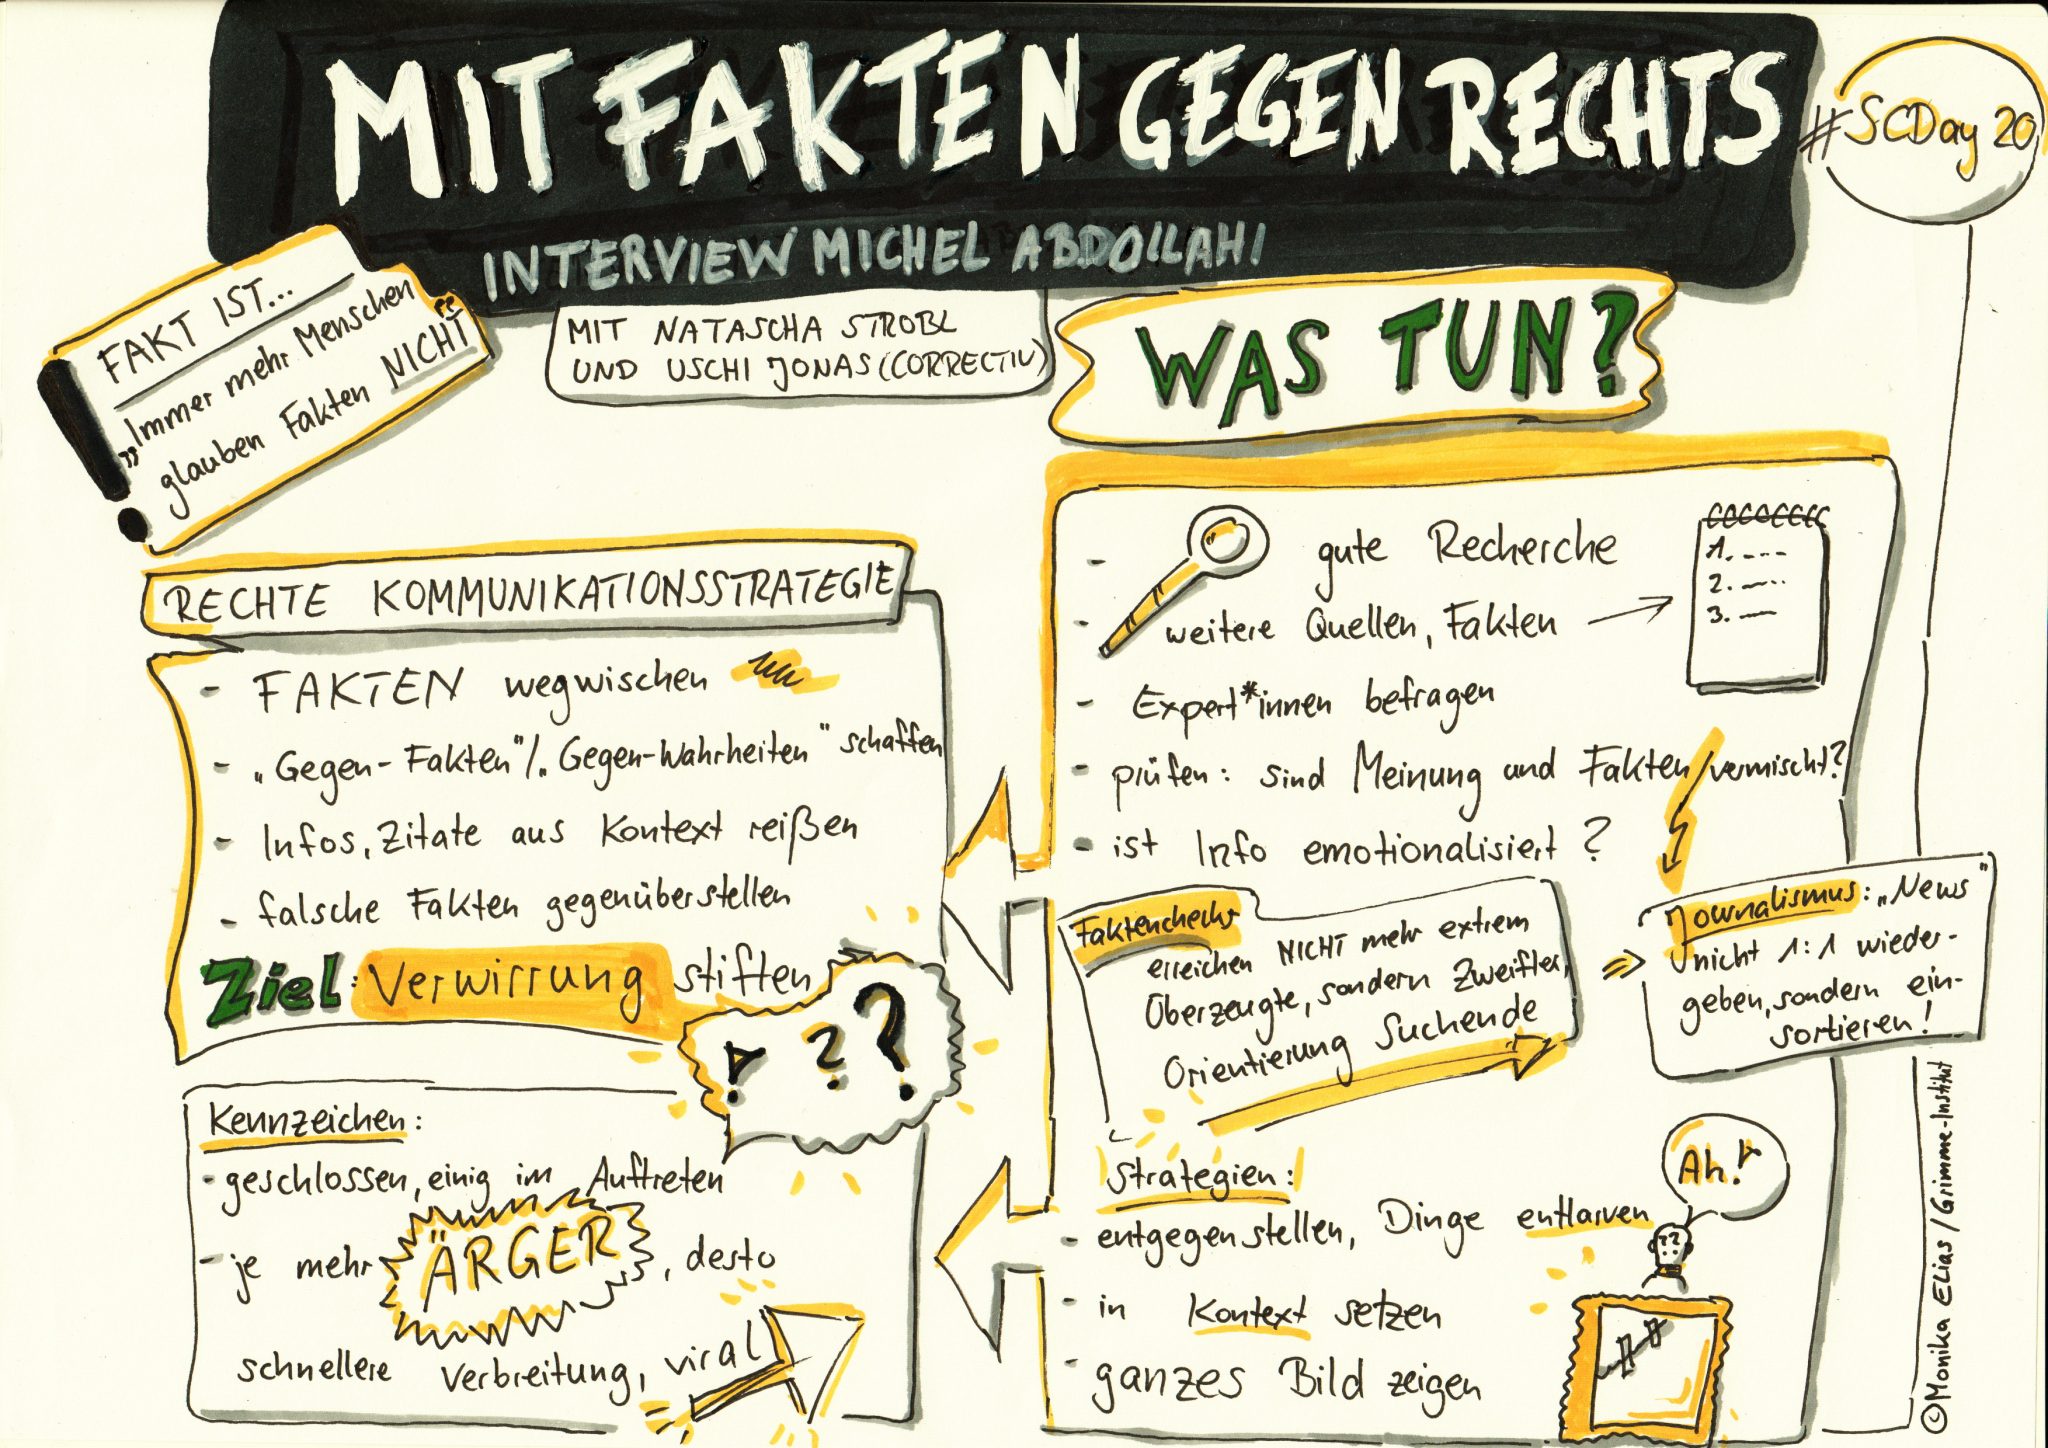 MIT FAKTEN GEGEN RECHTS
#SCDay 20
INTERVIEW MICHEL ABDOLLAHI
MIT NATASCHA STROBL
UND USCHI JONAS (CORRECTIV)
FAKT IST...
„Immer mehr Menschen
glauben Fakten NICHT"
RECHTE KOMMUNIKATIONSSTRATEGIE
- FAKTEN wegwischen
- „Gegen-Fakten"/„Gegen-Wahrheiten" schaffen
- Infos, Zitate aus Kontext reißen
- falsche Fakten gegenüberstellen
Ziel: Verwirrung stiften
! ? ?
Kennzeichen:
- geschlossen, einig im Auftreten
- je mehr ÄRGER, desto
schnellere Verbreitung, viral
WAS TUN?
- gute Recherche
- weitere Quellen, Fakten
1.
2.
3.
- Expert*innen befragen
- prüfen: sind Meinung und Fakten vermischt?
- ist Info emotionalisiert?
Faktenchecks
erreichen NICHT mehr extrem
Überzeugte, sondern Zweifler,
Orientierung Suchende
Journalismus: „News"
nicht 1:1 wieder-
geben, sondern ein-
sortieren!
Strategien:
- entgegenstellen, Dinge entlarven
- in Kontext setzen
- ganzes Bild zeigen
Ah!
©Monika Elias/Grimme-Institut